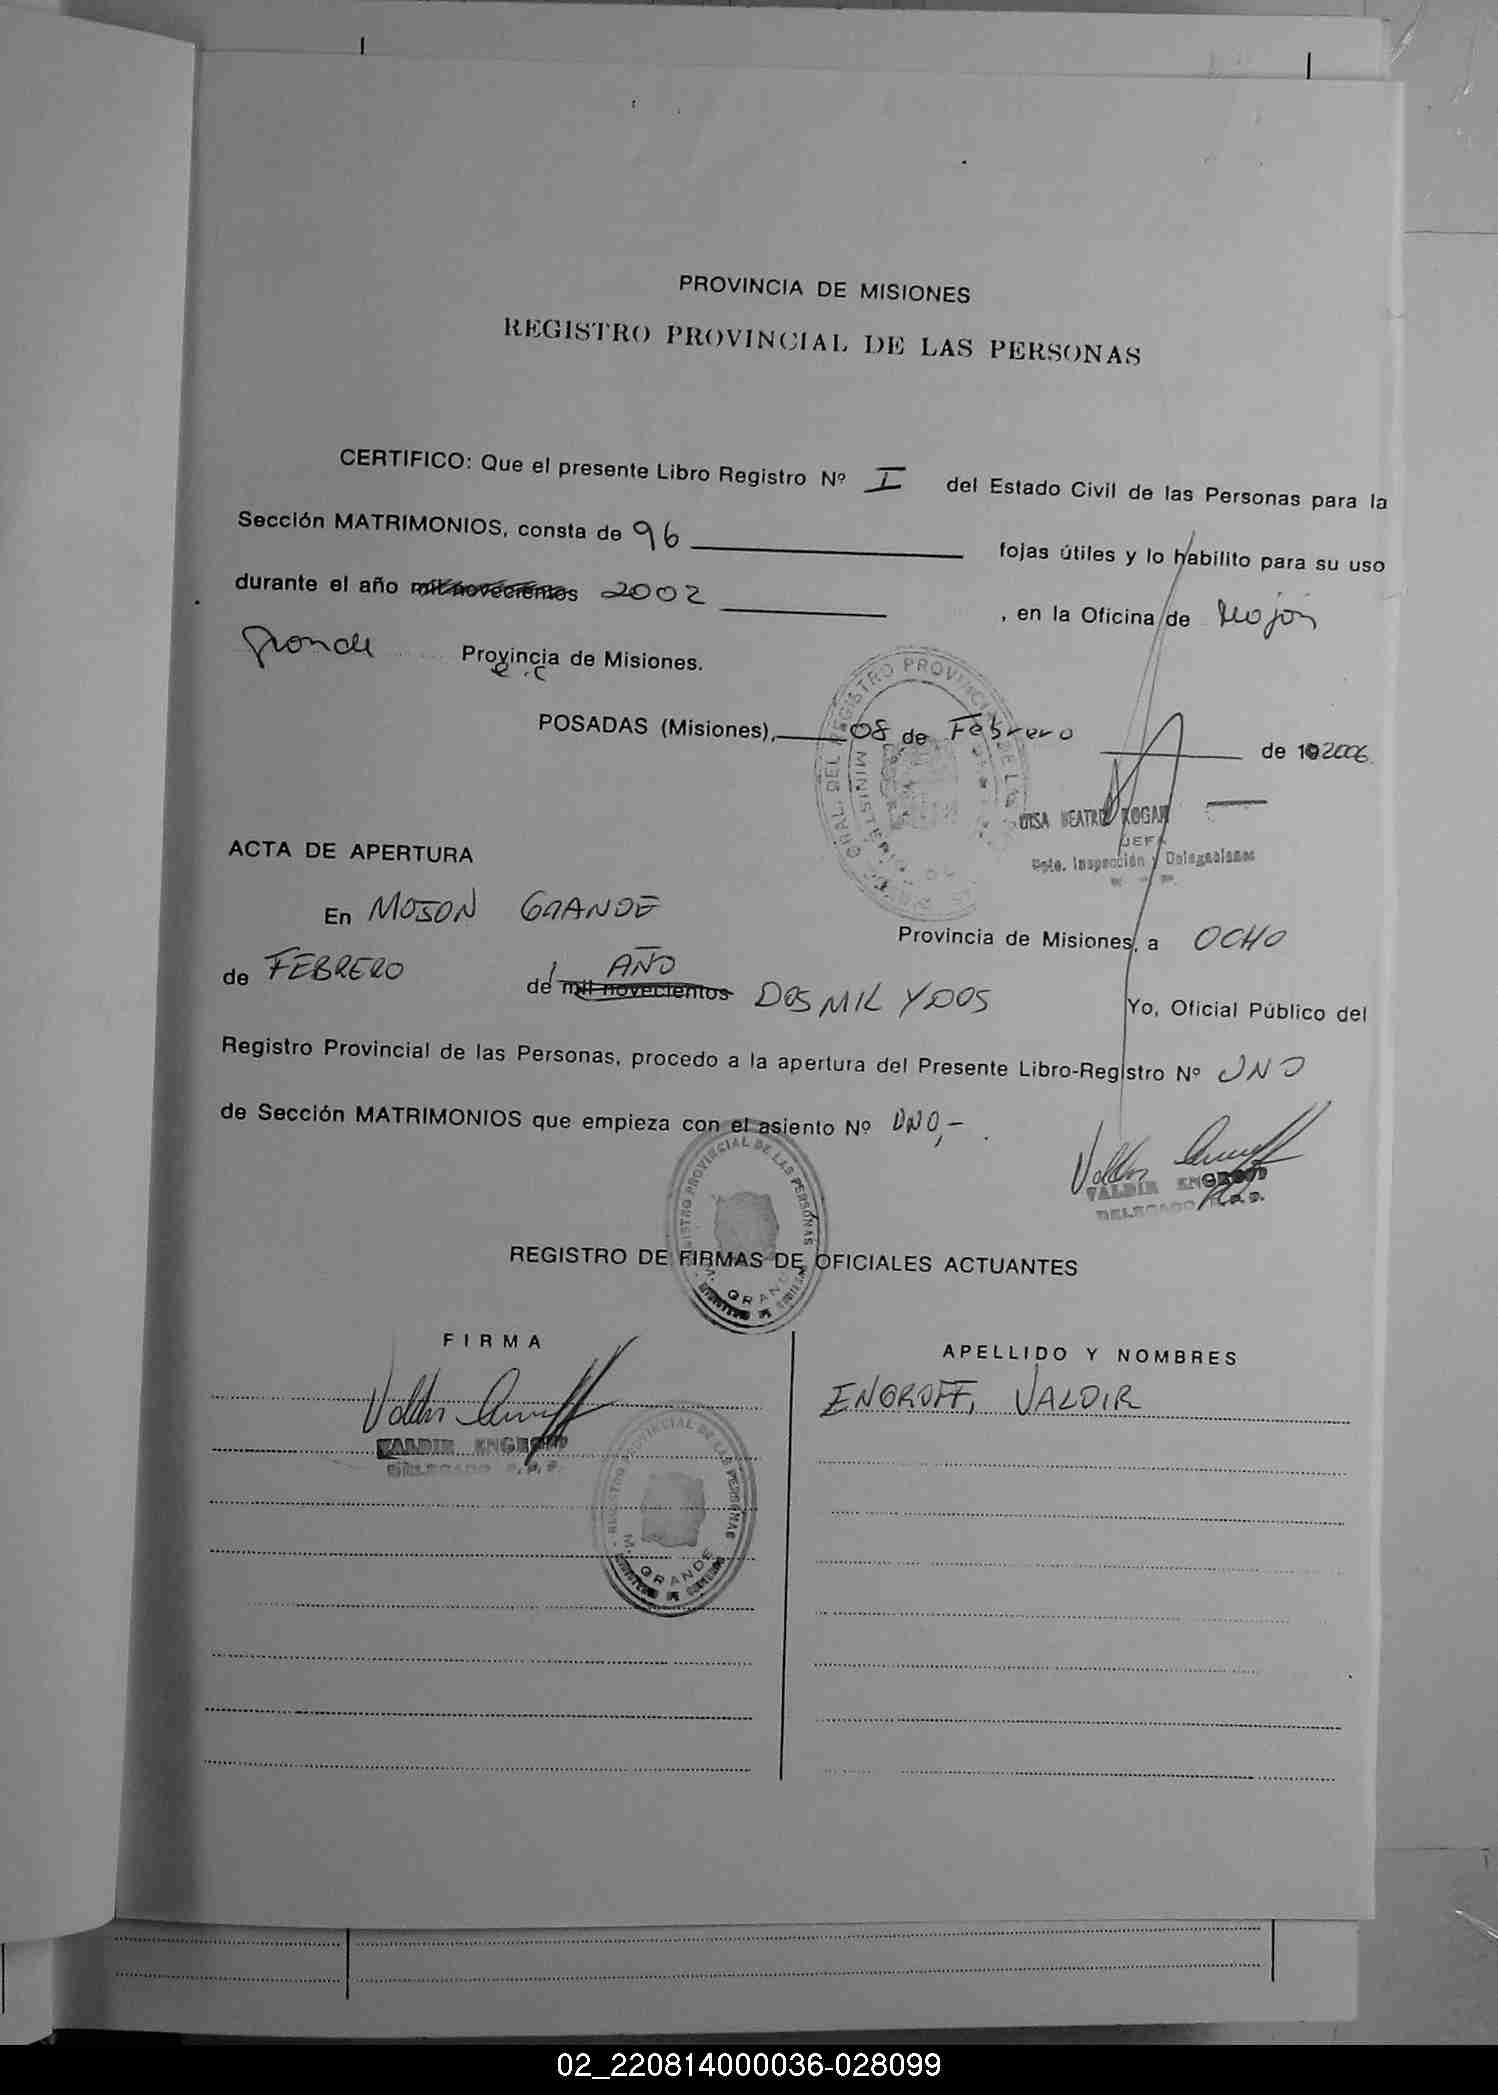 PROVINCIA DE MISIONES
REGISTRO PROVINCIAL DE LAS PERSONAS
CERTIFICO: Que el presente Libro Registro Nº I del Estado Civil de las Personas para la
Sección MATRIMONIOS, consta de 96 fojas útiles y lo habilito para su uso
durante el año mil novecientos 2002, en la Oficina de Mojón
Grande Provincia de Misiones.
POSADAS (Misiones), 08 de Febrero de 2006.
BEATRIZ ROGAN
JEFA
Dpto. Inspección y Delegaciones
ACTA DE APERTURA
En MOJON GRANDE Provincia de Misiones, a OCHO
de FEBRERO de mil novecientos AÑO DOS MIL Y DOS Yo, Oficial Público del
Registro Provincial de las Personas, procedo a la apertura del Presente Libro-Registro Nº UNO
de Sección MATRIMONIOS que empieza con el asiento Nº UNO,-
VALDIR ENGROFF
DELEGADO R.P.P.
REGISTRO PROVINCIAL DE LAS PERSONAS
M. GRANDE
REGISTRO DE FIRMAS DE OFICIALES ACTUANTES
FIRMA
APELLIDO Y NOMBRES
ENGROFF, VALDIR
VALDIR ENGROFF
DELEGADO R.P.P.
REGISTRO PROVINCIAL DE LAS PERSONAS
M. GRANDE
02_220814000036-028099